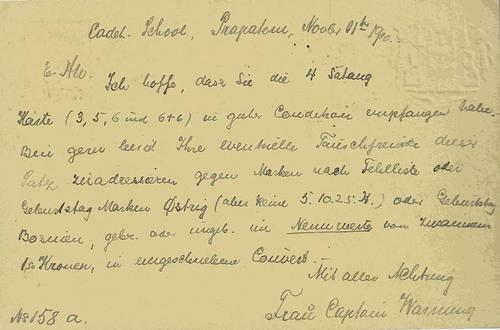 Cadet School, Prapatom, Novbr 1910.
E. Hw. Ich hoffe, dass Sie die 4 Satang
Karte (3, 5, 6 und 6+6) in guter Condition empfangen
Bin gern bereit Ihre eventuelle Tauschfreunde dieser
Satz zu adressieren gegen Marken nach Fehlliste oder
Geburtstag Marken (aber keine 5. 10. 25. H.) oder Geburtstag
Bosnien, gebr. oder ungeb. im Nennwerte von zusammen
Kronen, in eingeschriebene Couvert.
Mit aller Achtung
Frau Captain Warming
No 158 a.